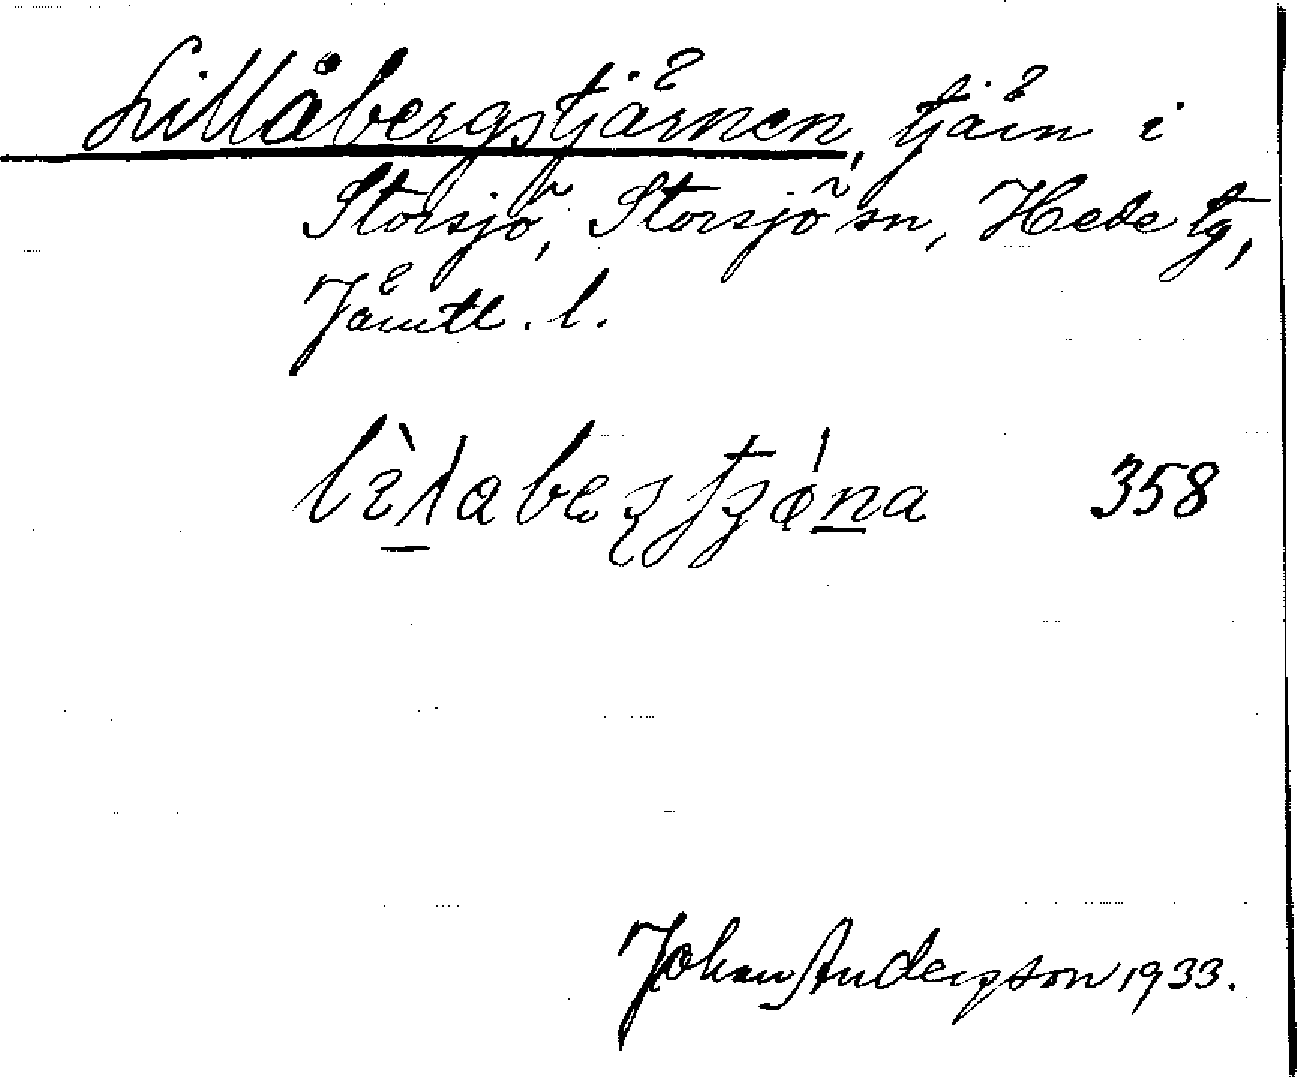 Lillåbergstjärnen, tjärn i
Storsjö, Storsjö sn, Hede tg,
Jämtl. l.
358
Johan Andersson 1933.